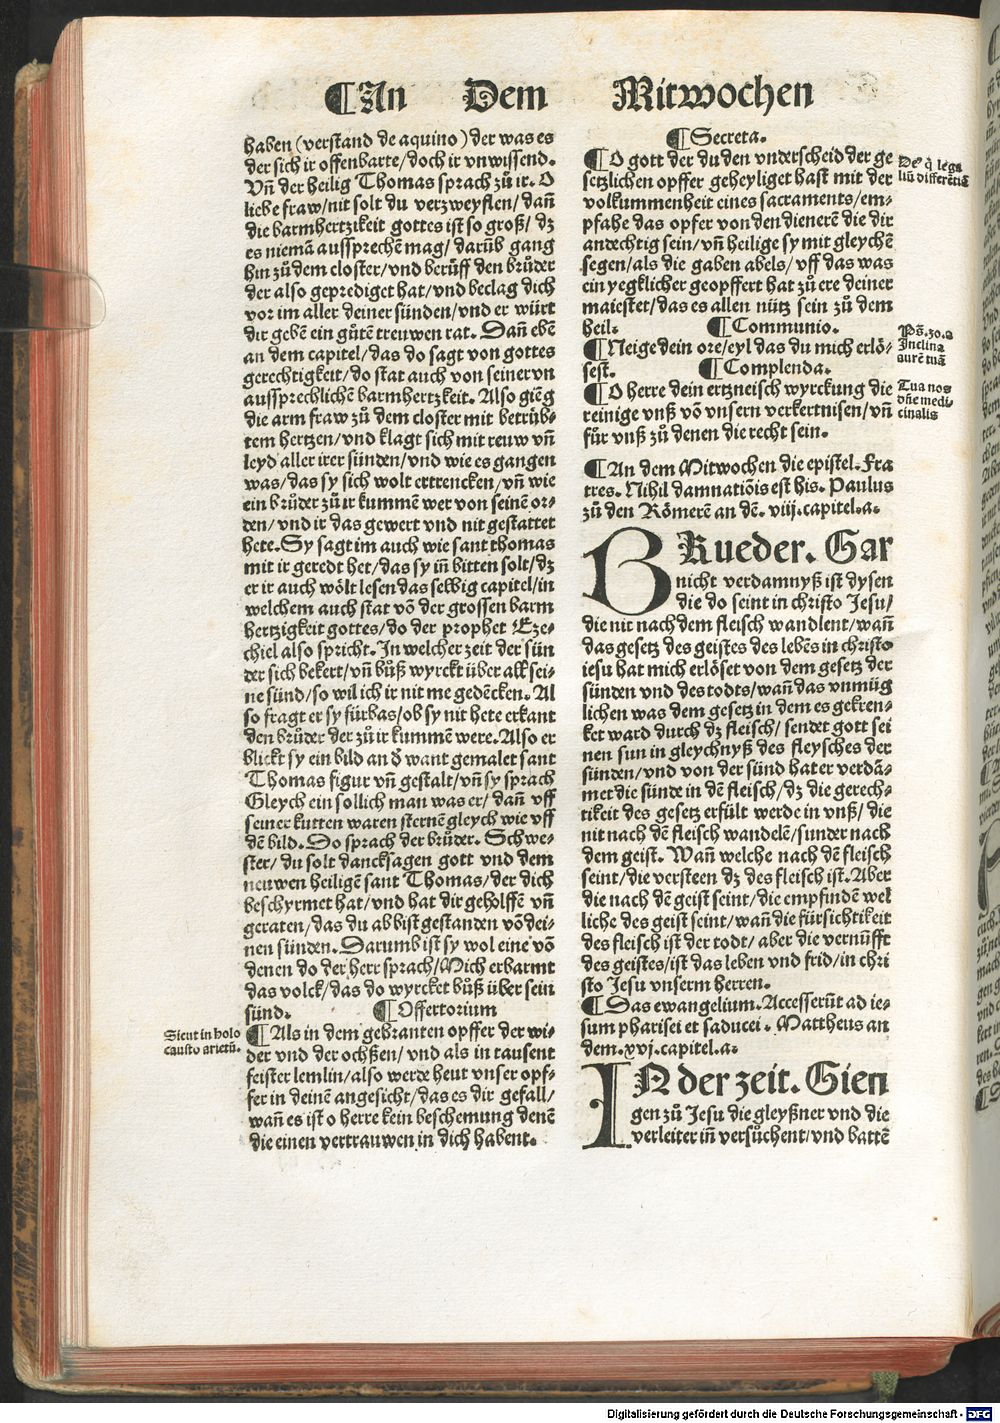 ¶An Dem Mitwochen
haben (verstand de aquino) der was es
der sich ir offenbarte/doch ir vnwissend.
Vn̄ der heilig Thomas sprach zů ir. O
liebe fraw/nit solt du verzweyflen/dan̄
die barmhertzikeit gottes ist so groß/dz
es niemā aussprechē mag/darūb gang
hin zů dem closter/vnd berůff den brůder
der also geprediget hat/vnd beclag dich
vor im aller deiner sünden/vnd er würt
dir gebē ein gůtē treuwen rat. Dan̄ ebē
an dem capitel/das do sagt von gottes
gerechtigkeit/do stat auch von seiner vn
aussprechlichē barmhertzkeit. Also gieḡ
die arm fraw zů dem closter mit betrüb⸗
tem hertzen/vnd klagt sich mit reuw vn̄
leyd aller irer sünden/vnd wie es gangen
was/das sy sich wolt ertrencken/vn̄ wie
ein brůder zů ir kummē wer von seinē or⸗
den/vnd ir das gewert vnd nit gestattet
hete. Sy sagt im auch wie sant thomas
mit ir geredt het/das sy in̄ bitten solt/dz
er ir auch wölt lesen das selbig capitel/in
welchem auch stat vō der grossen barm
hertzigkeit gottes/do der prophet Eze⸗
chiel also spricht. In welcher zeit der sün
der sich bekert/vn̄ bůß wyrckt über all sei⸗
ne sünd/so wil ich ir nit me gedēcken. Al
so fragt er sy fürbas/ob sy nit hete erkant
den brůder der zů ir kummē were. Also er
blickt sy ein bild an d̄ want gemalet sant
Thomas figur vn̄ gestalt/vn̄ sy sprach
Gleych ein sollich man was er/dan̄ vff
seiner kutten waren sternē gleych wie vff
dē bild. Do sprach der brůder. Schwe⸗
ster/du solt dancksagen gott vnd dem
neuwen heiligē sant Thomas/der dich
beschyrmet hat/vnd hat dir geholffē vn̄
geraten/das du abbist gestanden vō dei⸗
nen sünden. Darumb ist sy wol eine vō
denen do der herr sprach/Mich erbarmt
das volck/das do wyrcket bůß über sein
sünd. ¶Offertorium
Sicut in holo
causto arietū.
¶Als in dem gebranten opffer der wi⸗
der vnd der ochßen/vnd als in tausent
feister lemlin/also werde heut vnser opf⸗
fer in deinē angesicht/das es dir gefall/
wan̄ es ist o herre kein beschemung denē
die einen vertrauwen in dich habent.
¶Secreta.
¶O gott der du den vnderscheid der ge
setzlichen opffer geheyliget hast mit der
volkummenheit eines sacraments/em⸗
pfahe das opfer von den dienerē die dir
andechtig sein/vn̄ heilige sy mit gleychē
segen/als die gaben abels/vff das was
ein yegklicher geopffert hat zů ere deiner
maiestet/das es allen nütz sein zů dem
heil. ¶Communio.
¶Neige dein ore/eyl das du mich erlö⸗
sest. ¶Complenda.
¶O herre dein ertzneisch wyrckung die
reinige vnß vō vnsern verkertnisen/vn̄
für vnß zů denen die recht sein.
De⁹ q̄ lega
liū differētiā
Ps̄.30.a
Inclina
aurē tuā
Tua nos
dn̄e medi⸗
cinalis
¶An dem Mitwochen die epistel. Fra
tres. Nihil damnatiōis est his. Paulus
zů den Römerē an dē. viij. capitel.a.
BRueder. Gar
nicht verdamnyß ist dysen
die do seint in christo Jesu/
die nit nach dem fleisch wandlent/wan̄
das gesetz des geistes des lebēs in christo
iesu hat mich erlöset von dem gesetz der
sünden vnd des todts/wan̄ das vnmüg
lichen was dem gesetz in dem es gekren⸗
ket ward durch dz fleisch/sendet gott sei
nen sun in gleychnyß des fleysches der
sünden/vnd von der sünd hat er verdā⸗
met die sünde in dē fleisch/dz die gerech⸗
tikeit des gesetz erfült werde in vnß/die
nit nach dē fleisch wandelē/sunder nach
dem geist. Wan̄ welche nach dē fleisch
seint/die versteen dz des fleisch ist. Aber
die nach dē geist seint/die empfindē wel
liche des geist seint/wan̄ die fürsichtikeit
des fleisch ist der todt/aber die vernůfft
des geistes/ist das leben vnd frid/in chri
sto Jesu vnserm herren.
¶Das ewangelium. Accesserūt ad ie⸗
sum pharisei et saducei. Mattheus an
dem .xvj. capitel.a.
IN der zeit. Gien
gen zů Jesu die gleyßner vnd die
verleiter in̄ versůchent/vnd battē
Digitalisierung gefördert durch die Deutsche Forschungsgemeinschaft - DFG